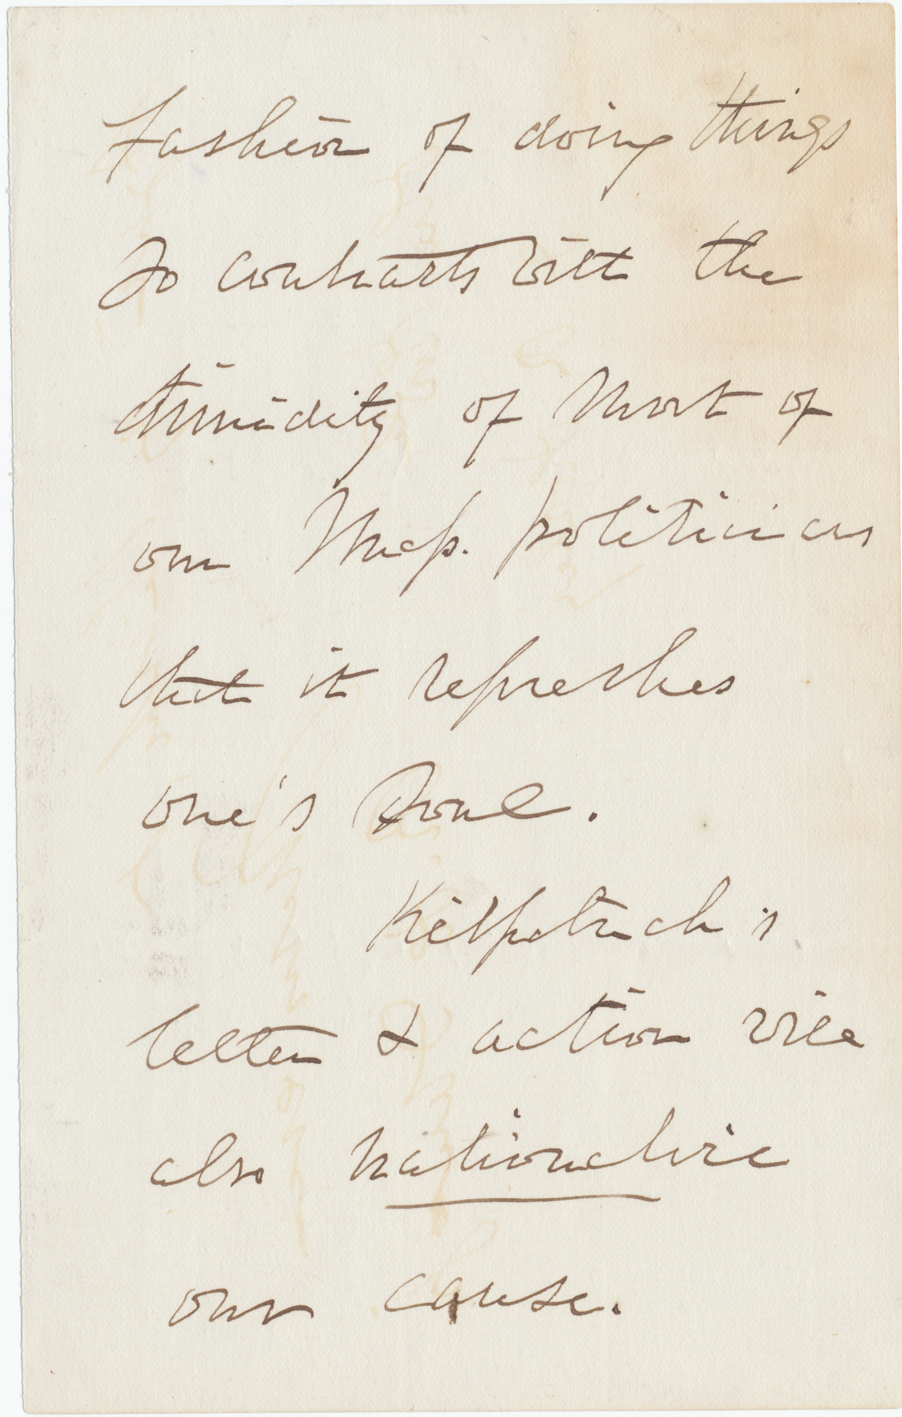 fashion of doing things
so contrasts with the
timidity of most of
our Mass. politicians
that it refreshes
one's soul.
Kilpatrick's
letter & action will
also nationalize
our cause.